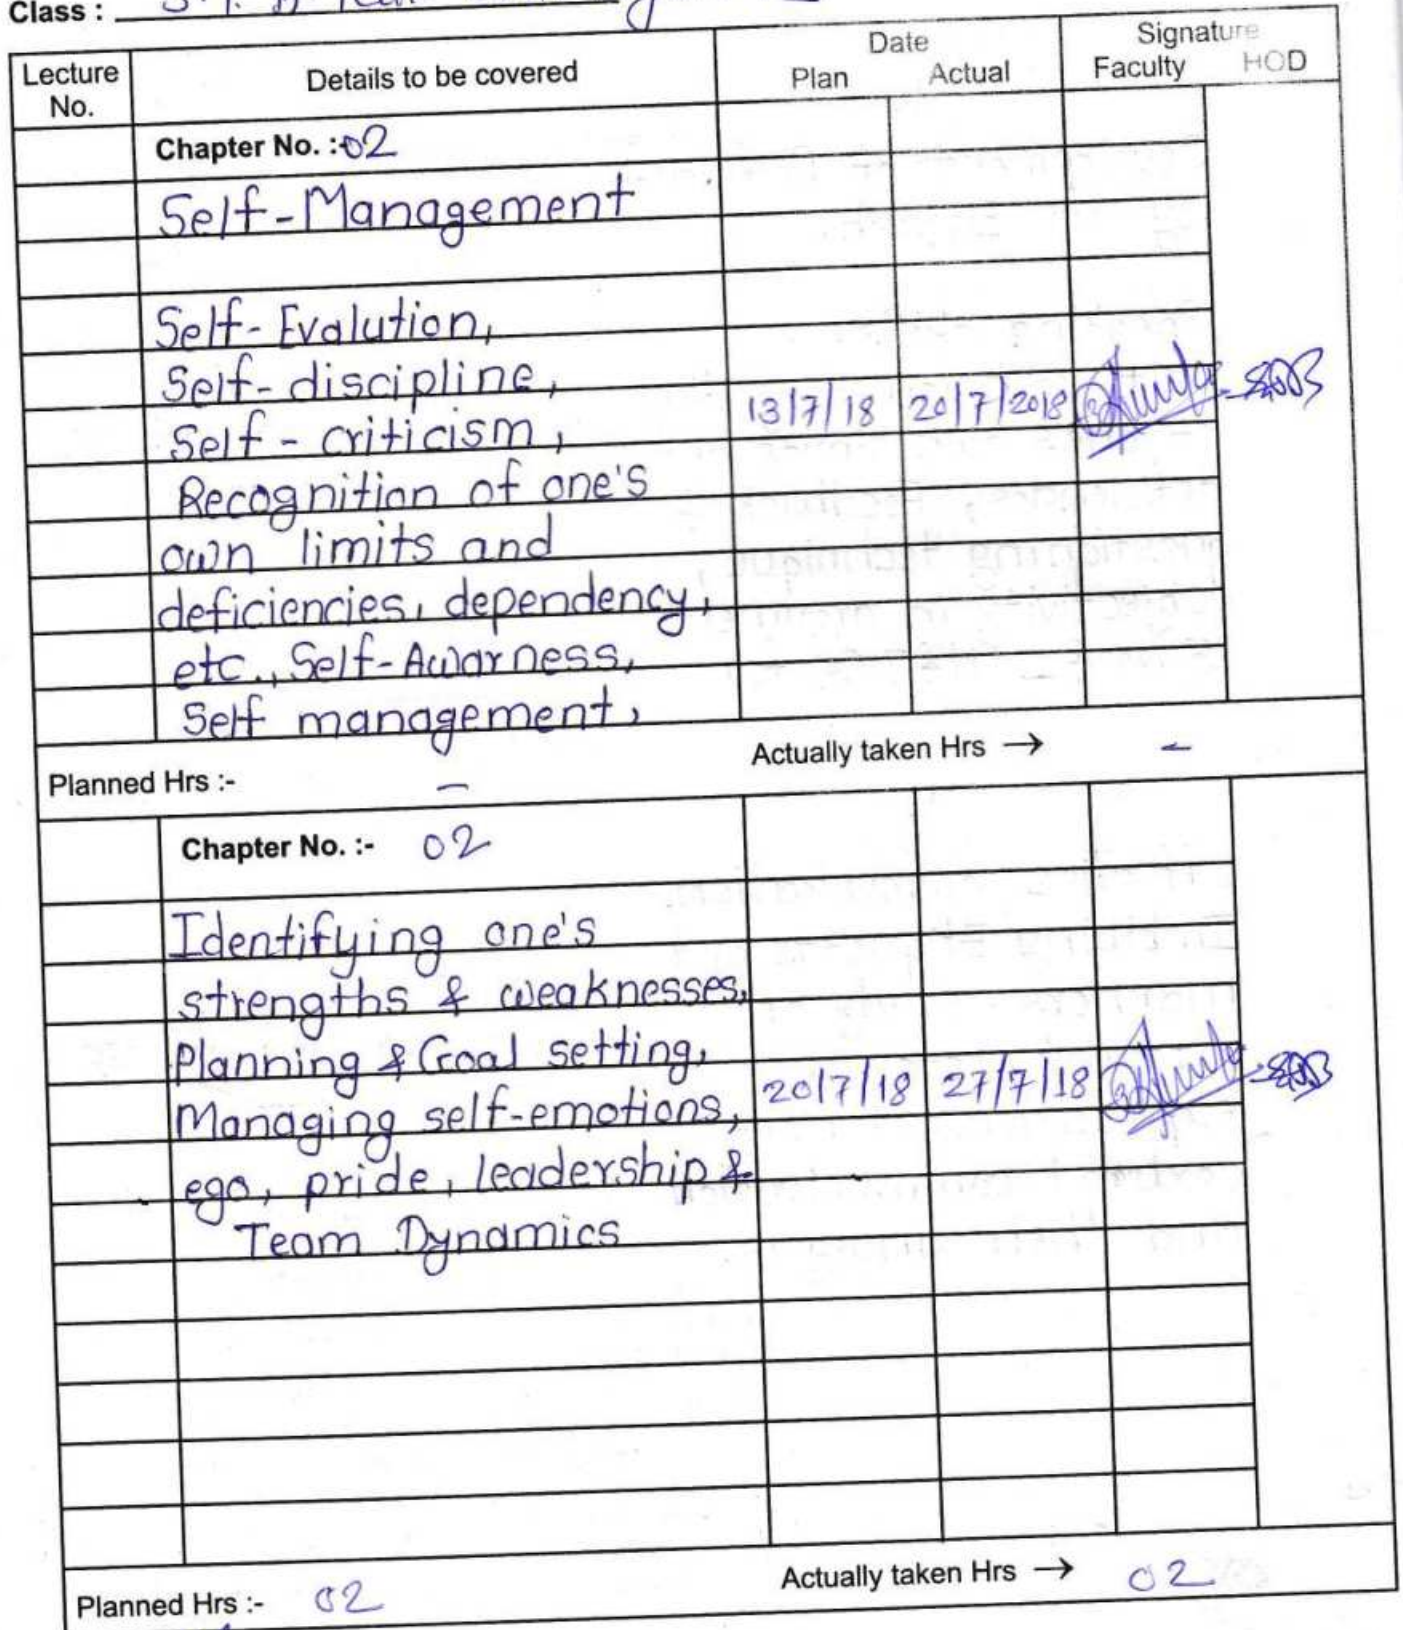 Class :
Lecture No.
Details to be covered
Date
Plan Actual
Signature
Faculty HOD
Chapter No. : 02
Self-Management
Self-Evalution,
Self-discipline,
Self-criticism,
13/7/18 20/7/2018
Recognition of one's
own limits and
deficiencies, dependency,
etc., Self-Awarness,
Self management,
Planned Hrs :- – Actually taken Hrs → –
Chapter No. :- 02
Identifying one's
strengths & weaknesses,
Planning & Goal setting,
Managing self-emotions, 20/7/18 27/7/18
ego, pride, leadership &
Team Dynamics
Planned Hrs :- 02 Actually taken Hrs → 02